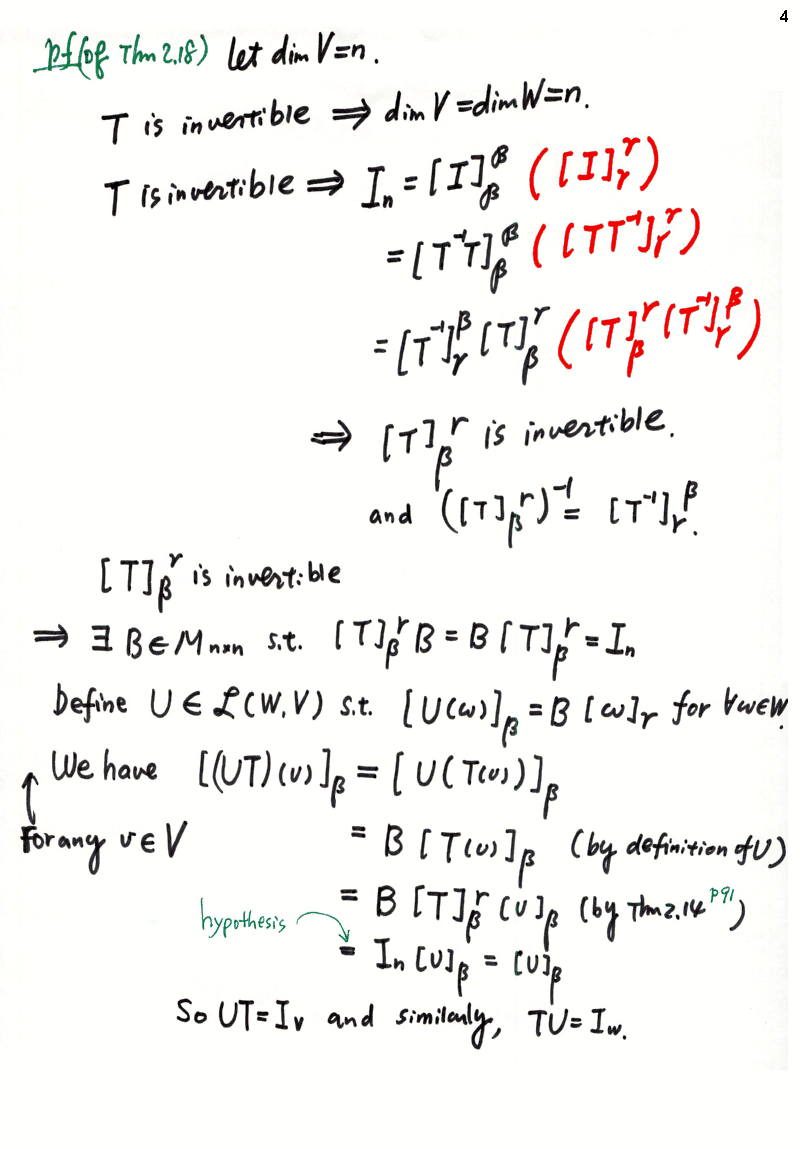 4
pf(of Thm 2.18) let dim V=n.
T is invertible ⇒ dim V = dim W = n.
T is invertible ⇒ I_n = [I]_β^β ([I]_γ^γ)
= [T⁻¹T]_β^β ([TT⁻¹]_γ^γ)
= [T⁻¹]_γ^β [T]_β^γ ([T]_β^γ [T⁻¹]_γ^β)
⇒ [T]_β^γ is invertible.
and ([T]_β^γ)⁻¹ = [T⁻¹]_γ^β.
[T]_β^γ is invertible
⇒ ∃ B ∈ M_{n×n} s.t. [T]_β^γ B = B [T]_β^γ = I_n
Define U ∈ ℒ(W,V) s.t. [U(w)]_β = B [w]_γ for ∀w∈W.
We have [(UT)(v)]_β = [U(T(v))]_β
For any v ∈ V = B [T(v)]_β (by definition of U)
= B [T]_β^γ [v]_β (by Thm 2.14 p91)
hypothesis = I_n [v]_β = [v]_β
So UT = I_V and similarly, TU = I_W.